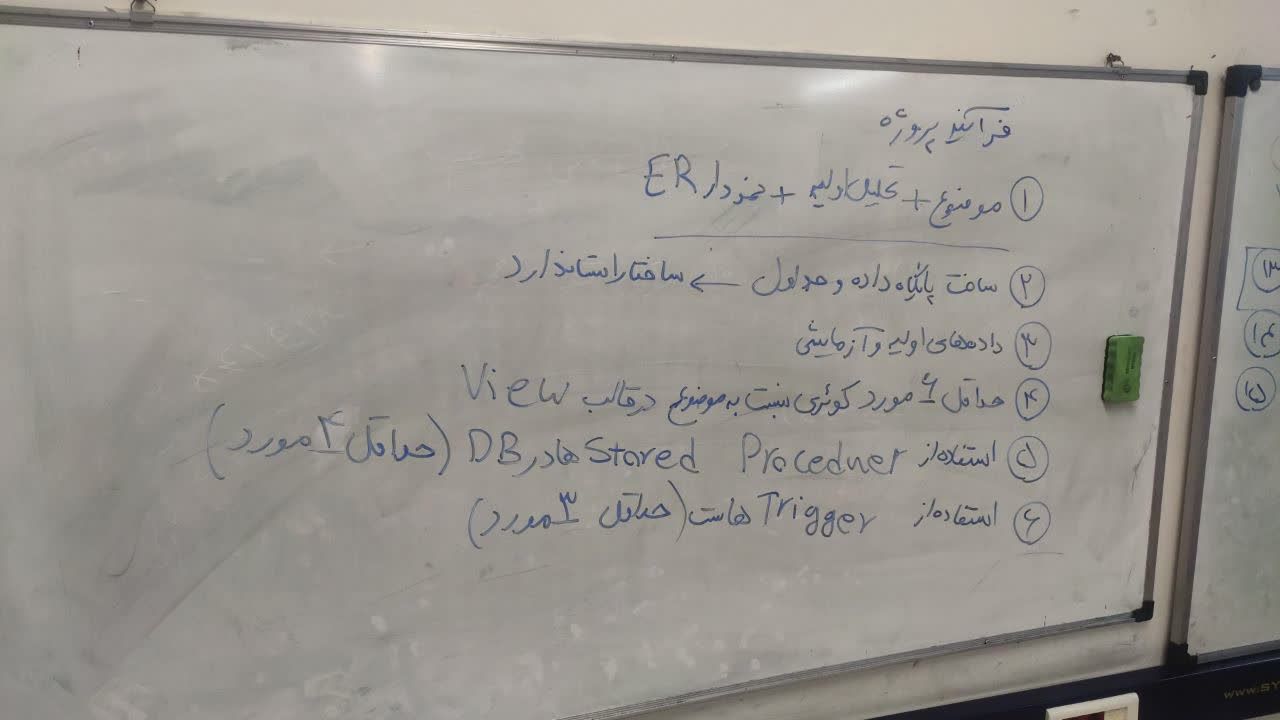 فرآیند پروژه
۱ موضوع + تحلیل اولیه + نمودار ER
۲ ساخت پایگاه داده و جداول ← ساختار استاندارد
۳ داده‌های اولیه و آزمایشی
۴ حداقل ۶ مورد کوئری نسبت به موضوع در قالب View
۵ استفاده از Stored Proceduer ها در DB (حداقل ۴ مورد)
۶ استفاده از Trigger هاست (حداقل ۳ مورد)
۱۳
۱۴
۱۵
www.SY